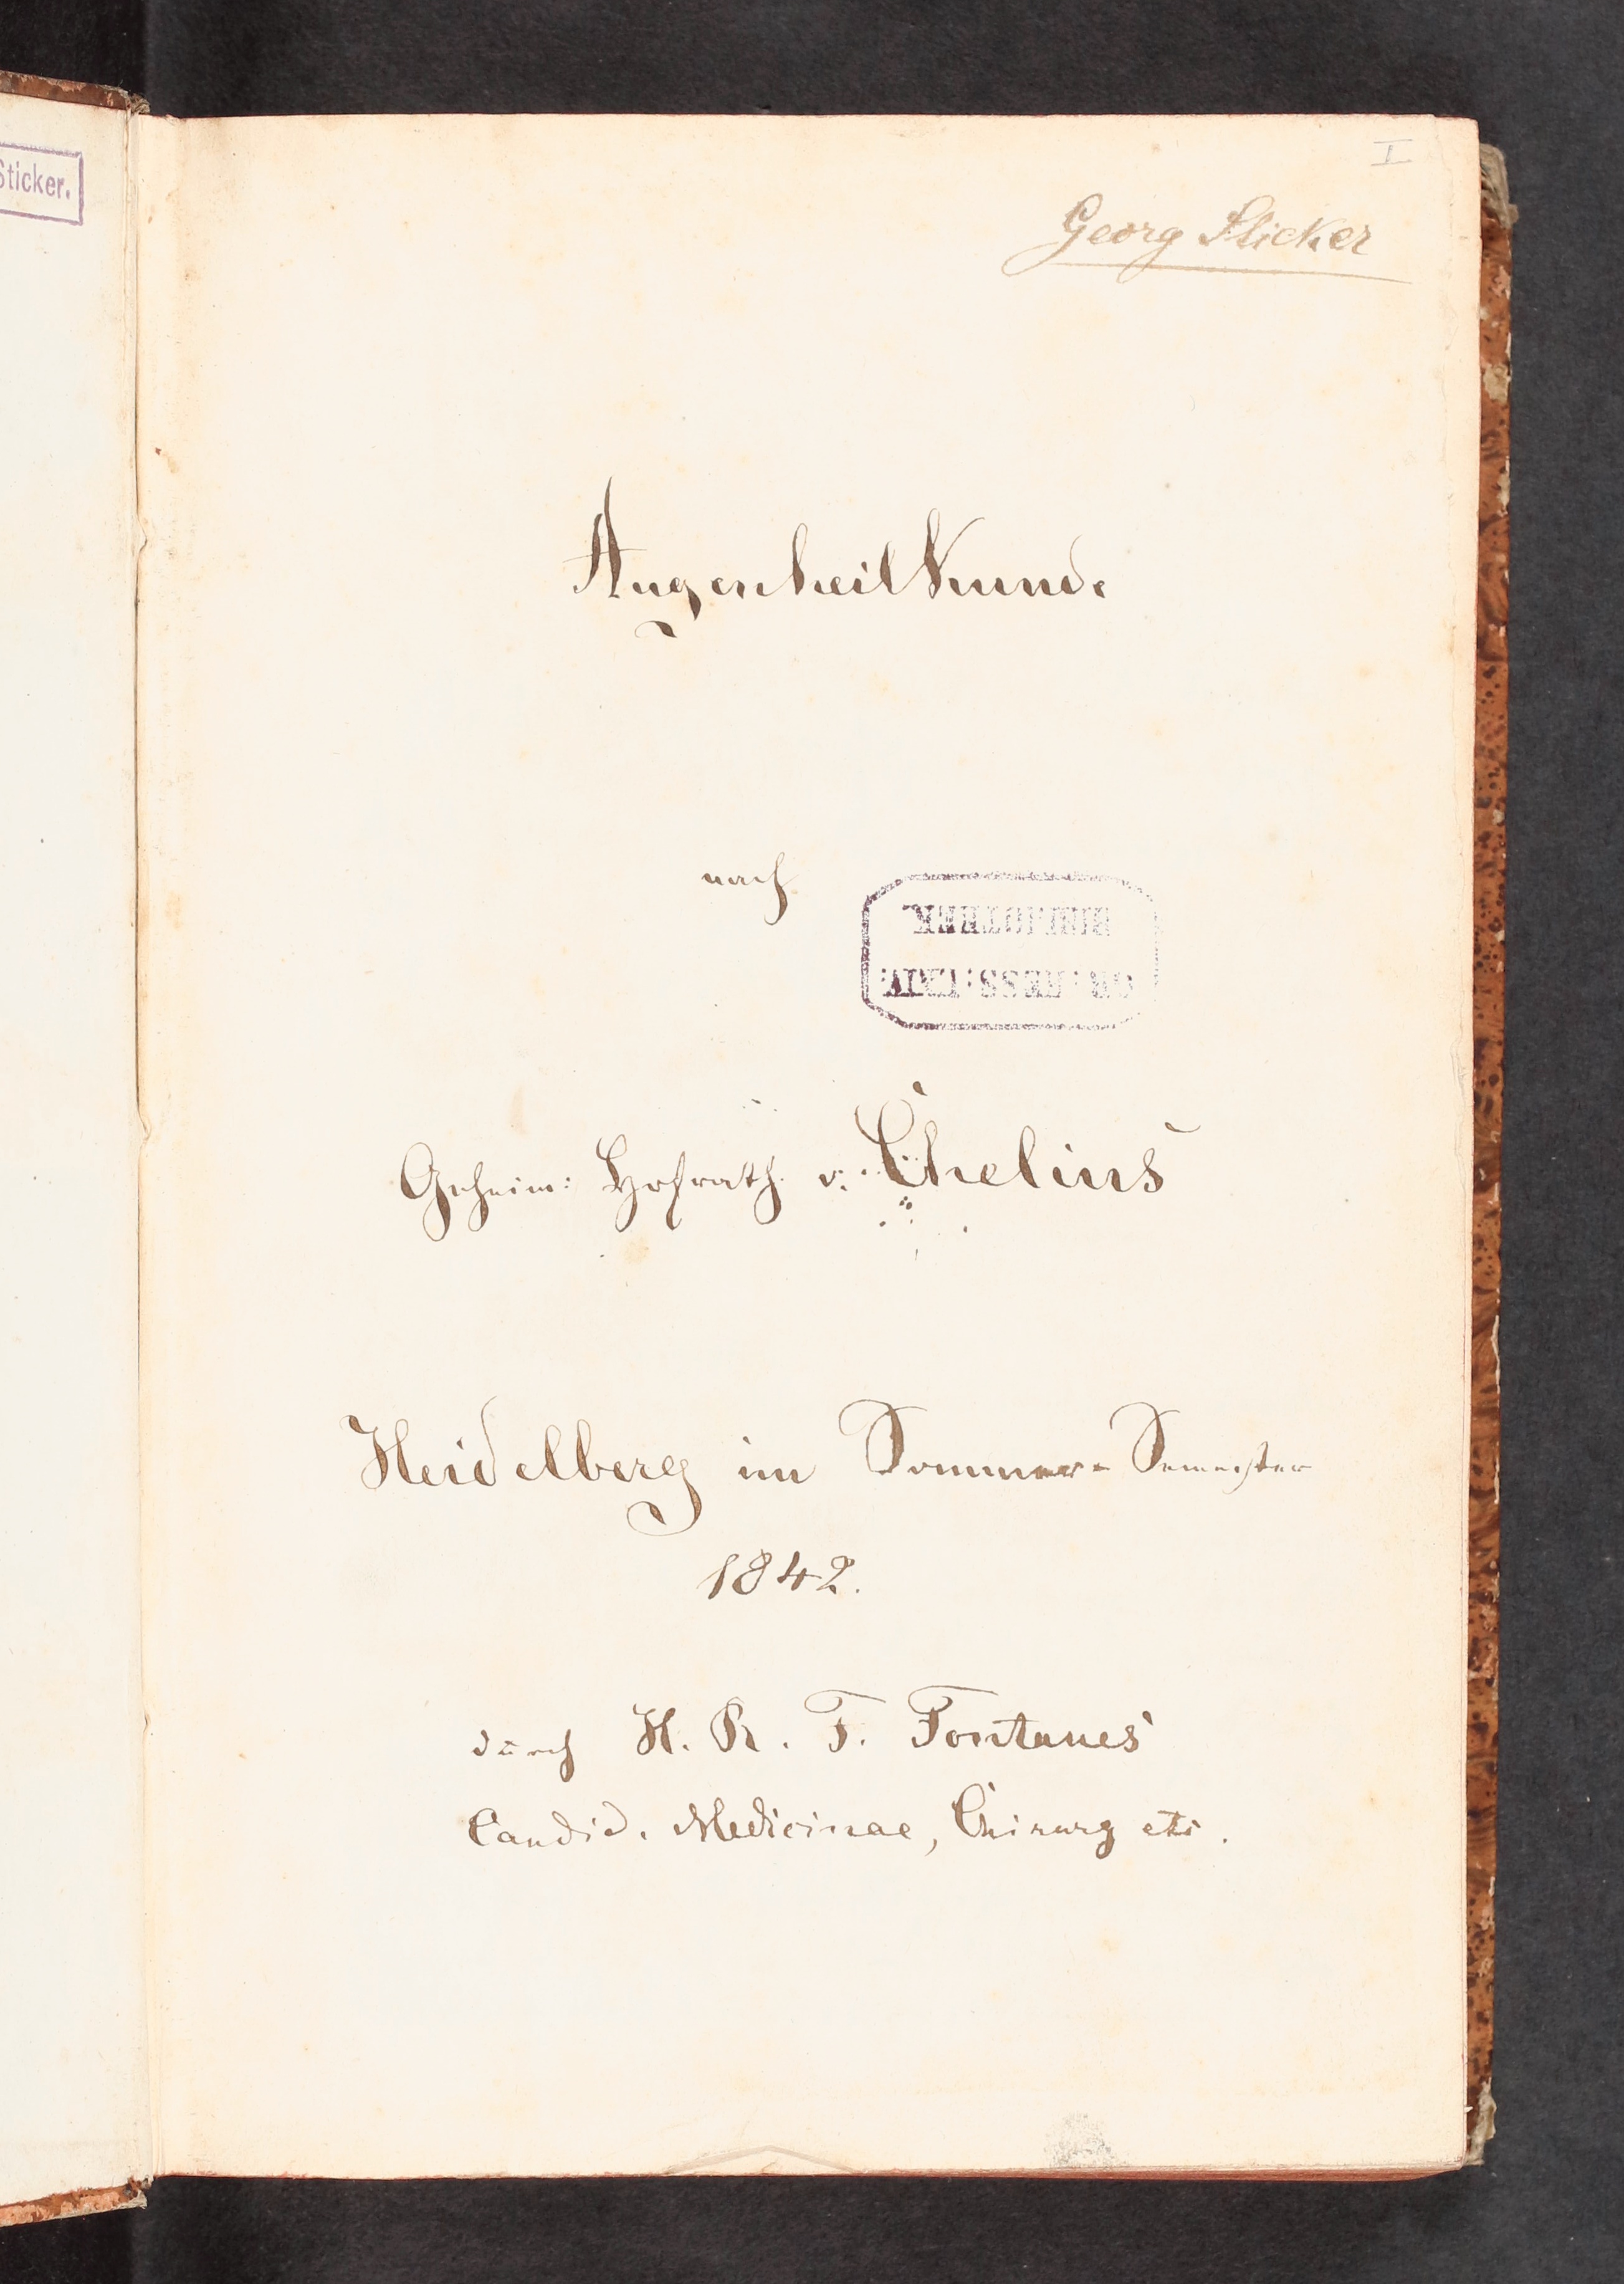 Sticker.
I
Georg Sticker
Augenheilkunde
nach
BIBLIOTHEK.
GR: HESS: UNIV:
Geheim: Hofrath v. Chelius
Heidelberg im Sommer-Semester
1842.
durch H. R. F. Fontanes
Candid. Medicinae, Chirurg etc.